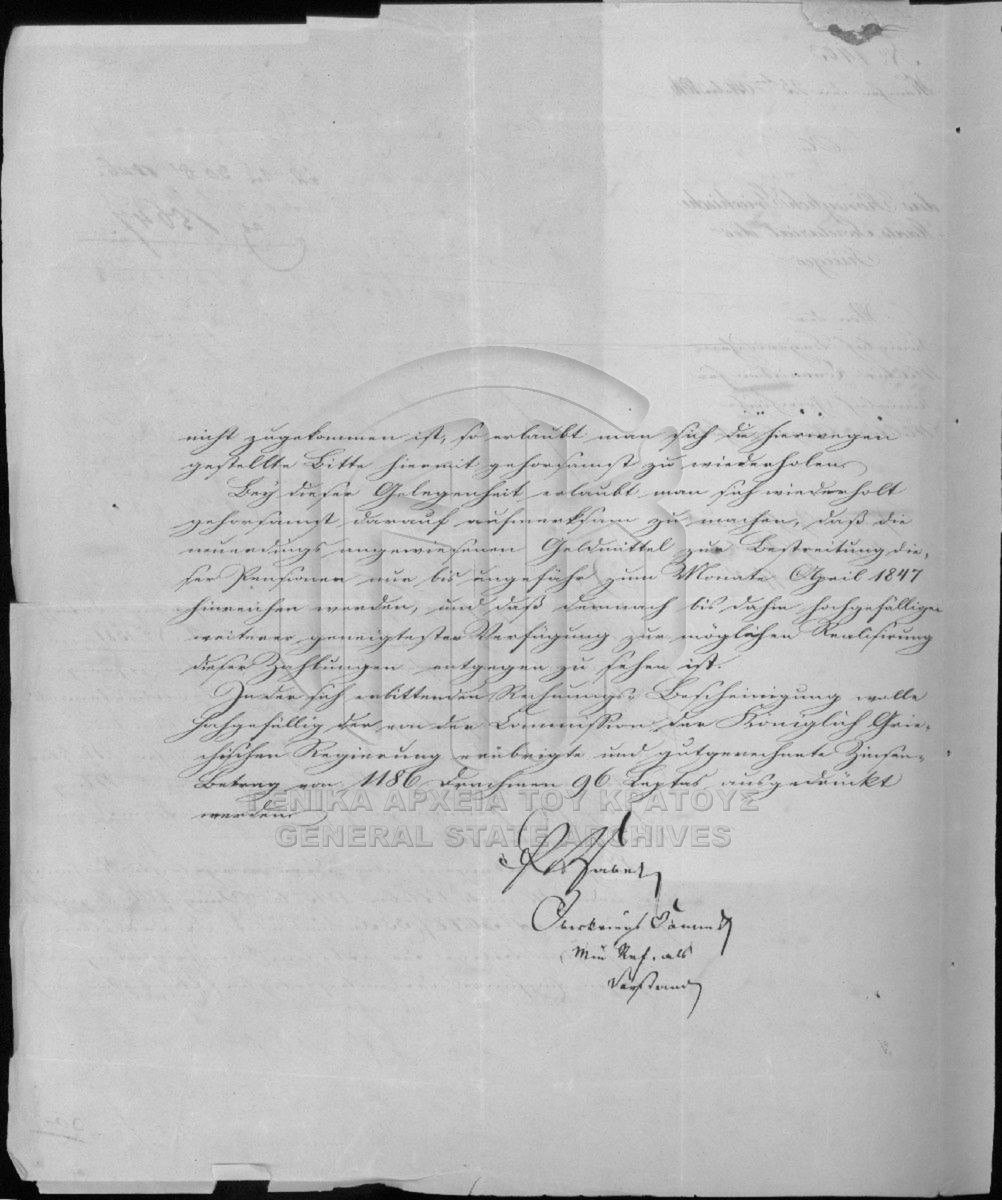 nicht zugekommen ist, so erlaubt man sich die hierwegen
gestellte Bitte hiermit gehorsamst zu wiederholen.
Bey dieser Gelegenheit erlaubt man sich wiederholt
gehorsamst darauf aufmerksam zu machen, daß die
neuerdings angewiesenen Geldmittel zur Bestreitung die-
ser Pensionen nur bis ungefähr zum Monate April 1847
hinreichen werden, und daß demnach bis dahin hochgefälliger
weiterer geneigtester Verfügung zur möglichen Realisirung
dieser Zahlungen entgegen zu sehen ist.
In der sich erbittenden Rechnungs-Bescheinigung wolle
hochgefällig der von der Commission der Königlich Grie-
chischen Regierung erübrigte und gutgerechnete Zinsen-
Betrag von 1186 Drachmen 96 Leptas ausgedrückt
werden.
ΓΕΝΙΚΑ ΑΡΧΕΙΑ ΤΟΥ ΚΡΑΤΟΥΣ
GENERAL STATE ARCHIVES
Oberkriegs Comm
Min Ref. als
Vorstand